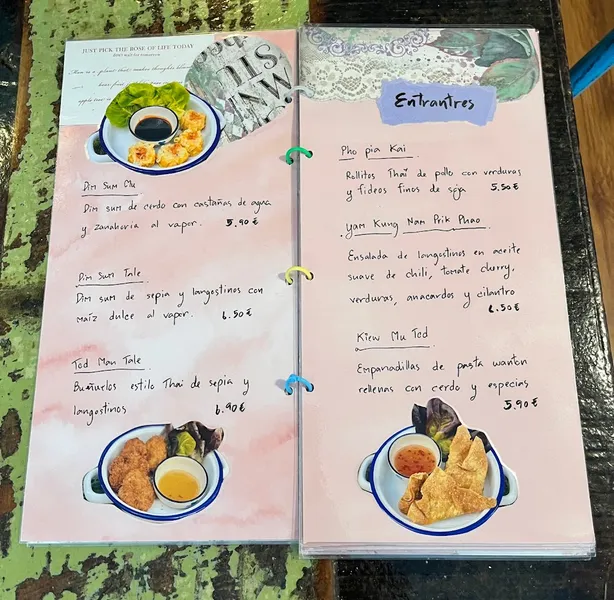 JUST PICK THE ROSE OF LIFE TODAY
Dim Sum Chu
Dim sum de cerdo con castañas de agua
y zanahoria al vapor. 5.90 €
Dim Sum Tale
Dim sum de sepia y langostinos con
maíz dulce al vapor. 6.50 €
Tod Man Tale
Buñuelos estilo Thai de sepia y
langostinos 6.90 €
Entrantres
Pho pia Kai
Rollitos Thai de pollo con verduras
y fideos finos de soja 5.50 €
Yam Kung Nam Prik Phao
Ensalada de langostinos en aceite
suave de chili, tomate cherry,
verduras, anacardos y cilantro
6.50 €
Kiew Mu Tod
Empanadillas de pasta wanton
rellenas con cerdo y especias
5.90 €